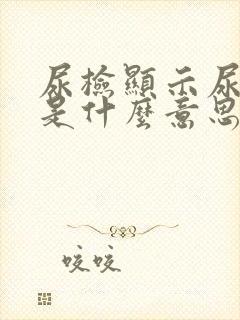 尿檢顯示尿
是什麼意思
咬咬